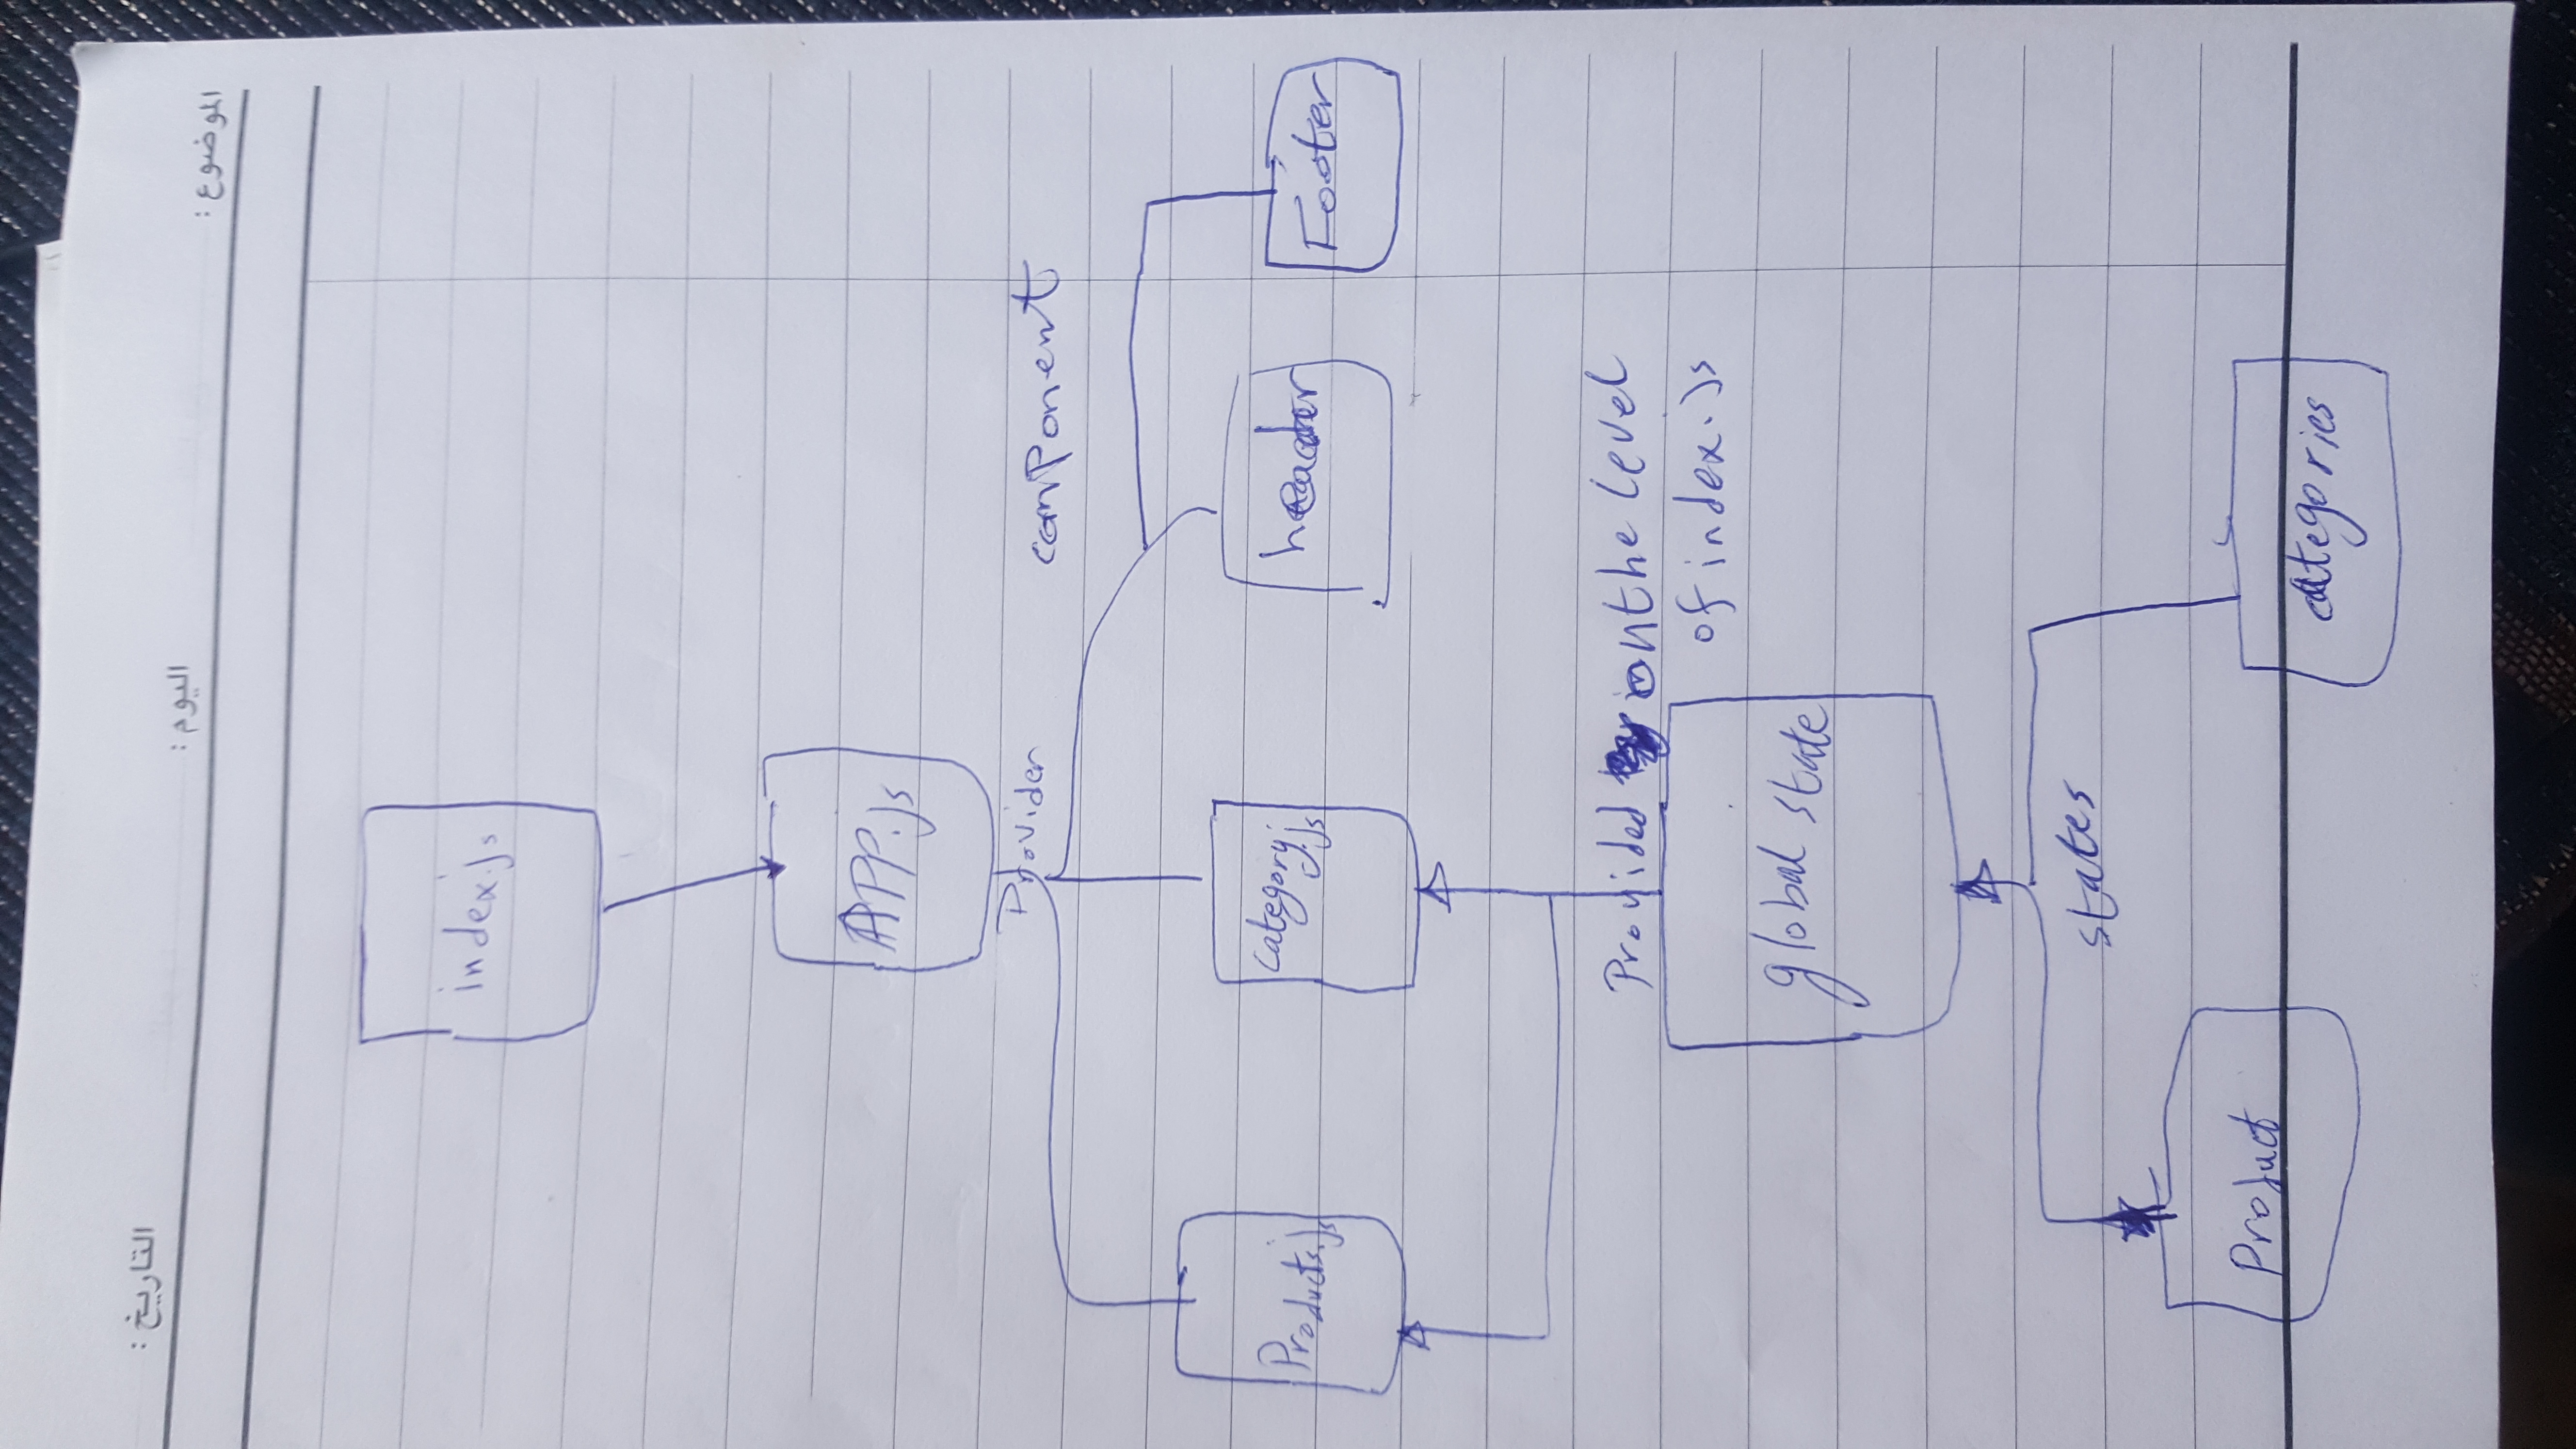 الموضوع :
اليوم :
التاريخ :
index.js
APP.js
Provider
component
Products.js
category.js
header
Footer
Provided on the level
of index.js
global state
states
Product
categories